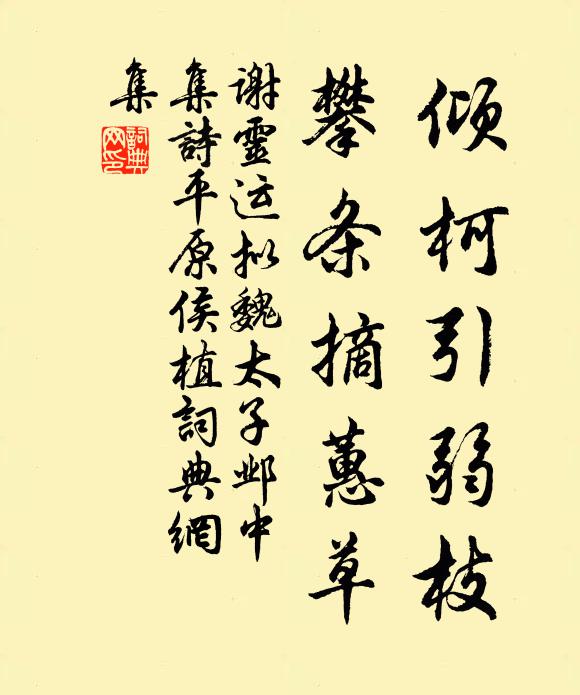 倾柯引弱枝
攀条摘蕙草
谢灵运拟魏太子邺中
集詩平原侯植詞典網
集
詞典
网印